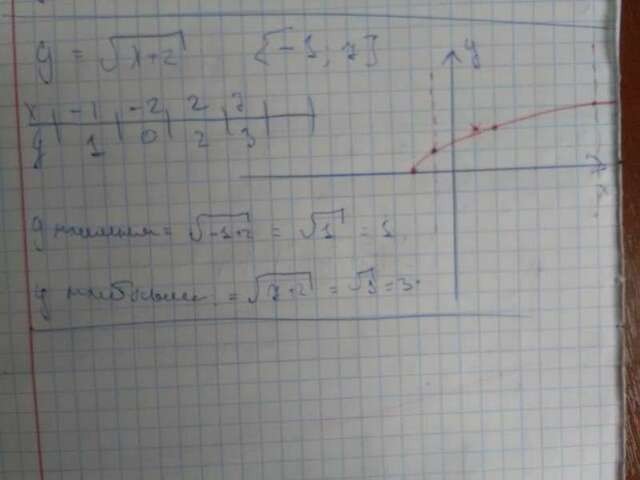 y = √x+2 [-1; 7]
x -1 -2 2 7
y 1 0 2 3
y
x
y наименьш = √-1+2 = √1 = 1
y наибольш. = √7+2 = √9 = 3.